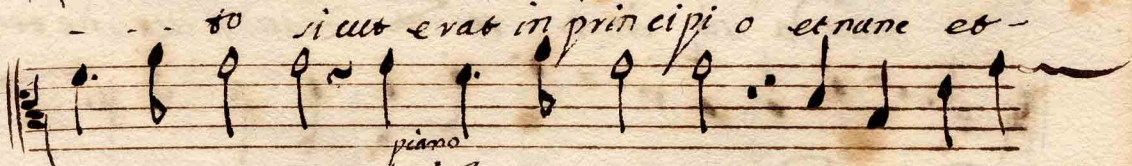 - - - to sicut erat in principi o et nunc et -
piano